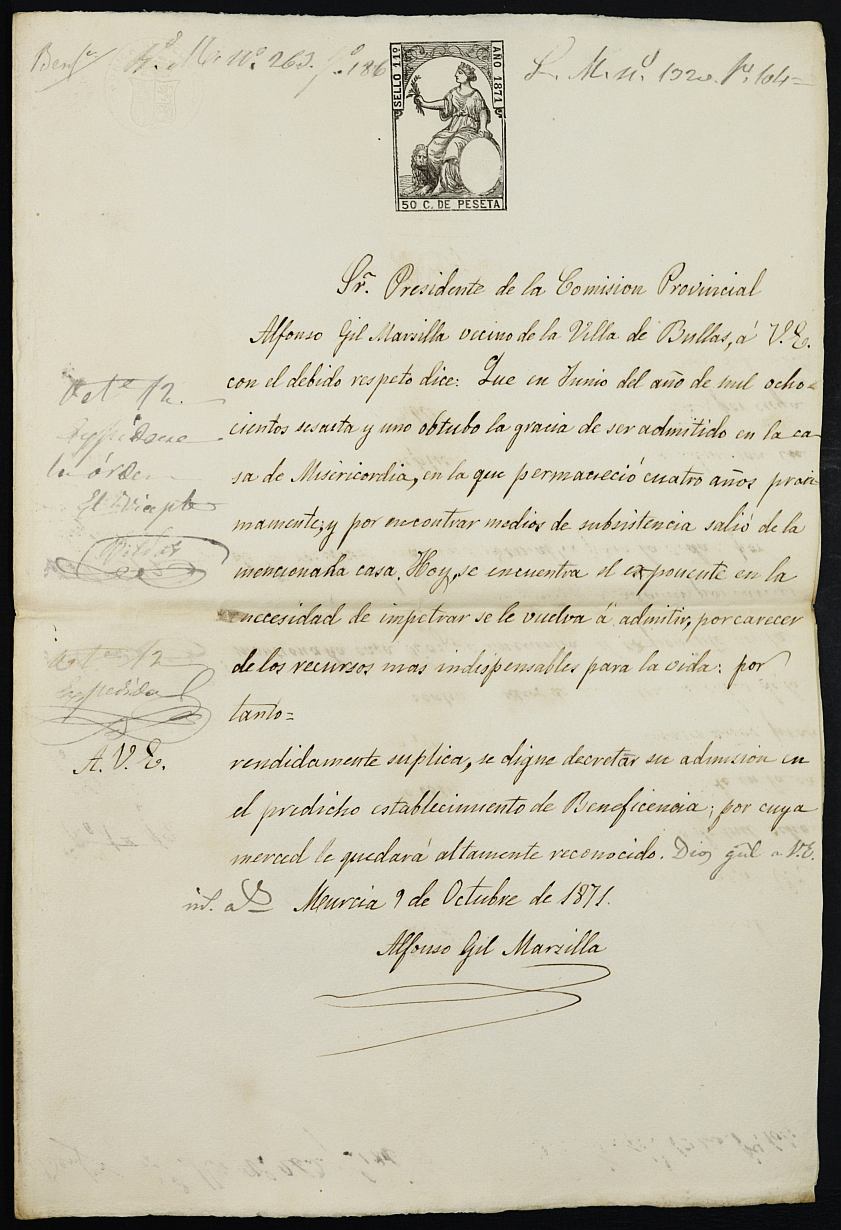 Benf.ª nº 263. fº 186
L. M. nº 1320. fº 104=
SELLO 11º
AÑO 1871
50 C. DE PESETA
Sr. Presidente de la Comision Provincial
Alfonso Gil Marsilla vecino de la Villa de Bullas, á V.E.
con el debido respeto dice: Que en Junio del año de mil ocho=
cientos sesaeta y uno obtubo la gracia de ser admitido en la ca-
sa de Misericordia, en la que permaeció cuatro años proxi-
mamente, y por encontrar medios de subsistencia salió de la
mencionada casa. Hoy, se encuentra el exponente en la
necesidad de impetrar se le vuelva á admitir, por carecer
de los recursos mas indispensables para la vida: por
tanto=
A. V. E.
rendidamente suplica, se digne decretar su admision en
el predicho establecimiento de Beneficencia; por cuya
merced le quedará altamente reconocido. Dios gũe a V.E.
m.s a.s Murcia 9 de Octubre de 1871.
Alfonso Gil Marsilla
Oct.e 12
Expídase
la órden
El Vicepte
Oct.e 12
Expedida